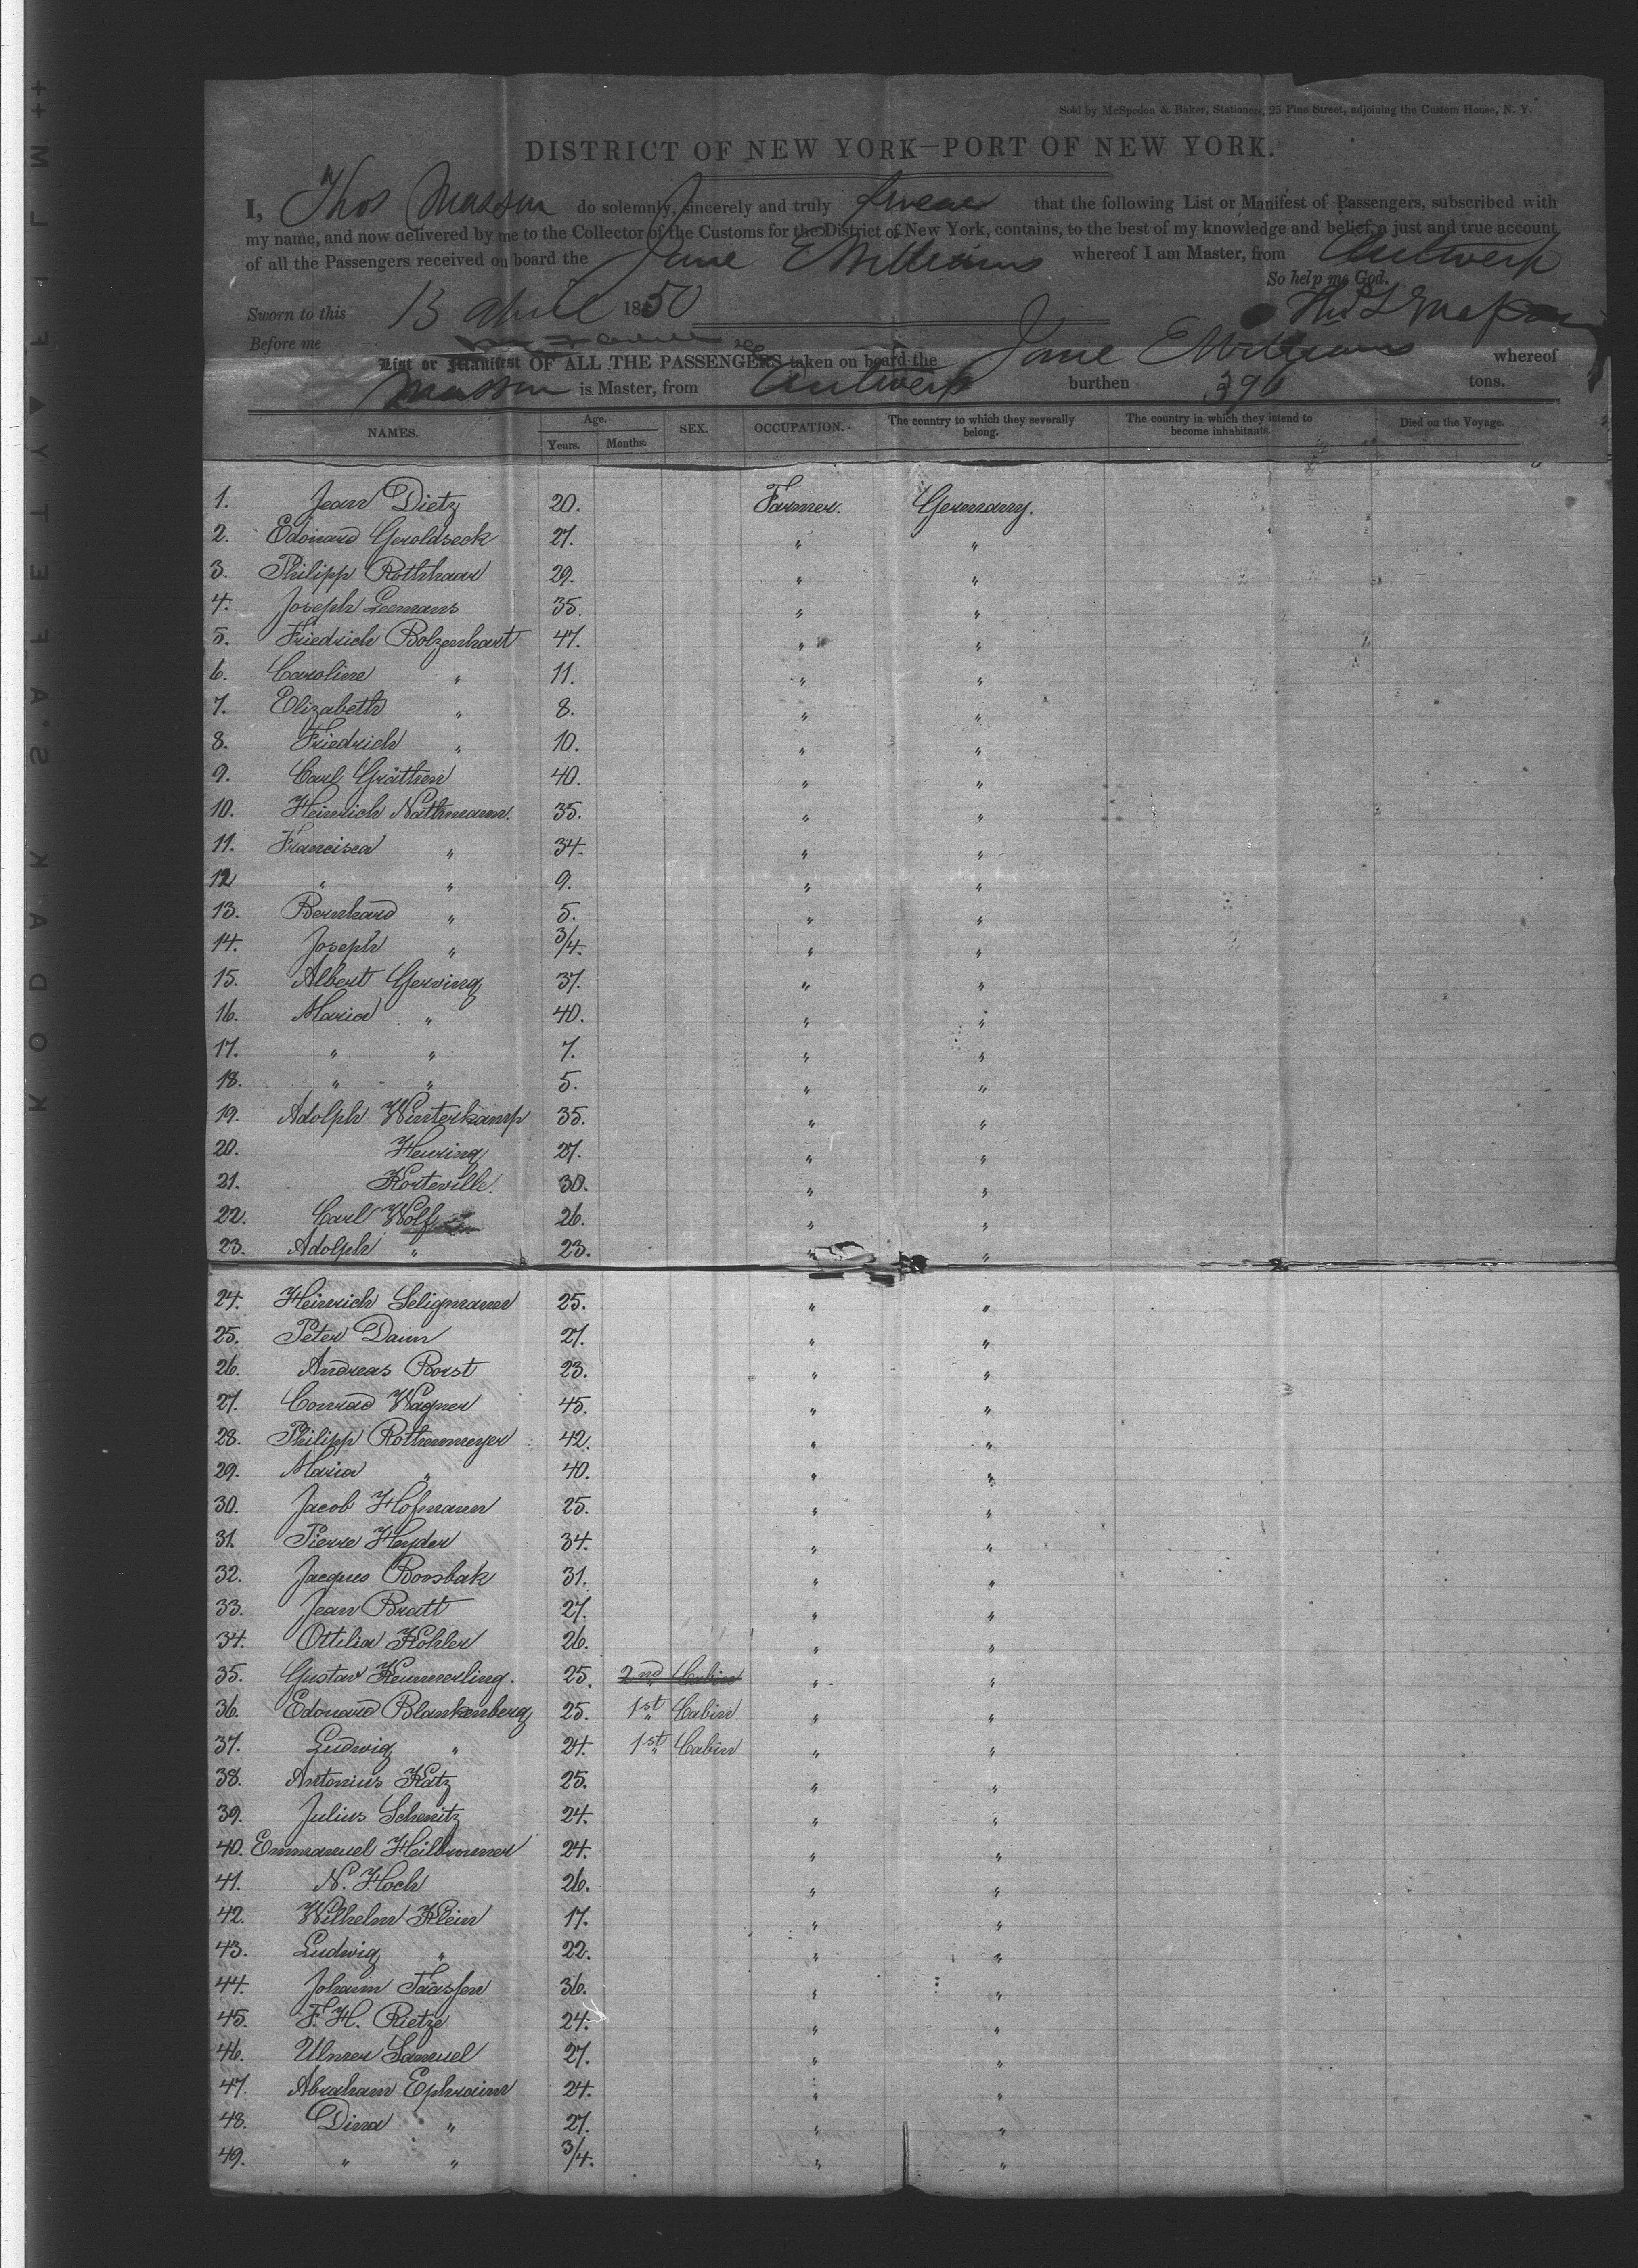 Sold by McSpedon & Baker, Stationers, 25 Pine Street, adjoining the Custom House, N. Y.
DISTRICT OF NEW YORK—PORT OF NEW YORK.
I, Thos Masson do solemnly, sincerely and truly swear that the following List or Manifest of Passengers, subscribed with
my name, and now delivered by me to the Collector of the Customs for the District of New York, contains, to the best of my knowledge and belief, a just and true account
of all the Passengers received on board the Jane E Williams whereof I am Master, from Antwerp
So help me God.
Sworn to this 13 April 1850
Before me
List or Manifest OF ALL THE PASSENGERS taken on board the Jane E Williams whereof
Masson is Master, from Antwerp burthen 396 tons.
NAMES. Age. Years. Months. SEX. OCCUPATION. The country to which they severally belong. The country in which they intend to become inhabitants. Died on the Voyage.
1. Jean Dietz 20. Farmer. Germany.
2. Edouard Geroldseck 27. " "
3. Philipp Rothhaar 29. " "
4. Joseph Leemans 35. " "
5. Friedrich Bolzenhart 47. " "
6. Caroline " 11. " "
7. Elizabeth " 8. " "
8. Friedrich " 10. " "
9. Carl Gräthen 40. " "
10. Heinrich Nathmann. 35. " "
11. Francisca " 34. " "
12 " " 9. " "
13. Bernhard " 5. " "
14. Joseph " 3/4. " "
15. Albert Gerving 37. " "
16. Maria " 40. " "
17. " " 7. " "
18. " " 5. " "
19. Adolph Winterkamp 35. " "
20. Heuring 27. " "
21. Korteville. 30. " "
22. Carl Wolf 26. " "
23. Adolph " 23. " "
24. Heinrich Seligmann 25. " "
25. Peter Daim 27. " "
26. Andreas Borst 23. " "
27. Conrad Wagner 45. " "
28. Philipp Rothenmeyer 42. " "
29. Maria " 40. " "
30. Jacob Hofmann 25. " "
31. Pierre Heyder 34. " "
32. Jacques Boosbak 31. " "
33. Jean Bratt 27. " "
34. Ottilia Kohler 26. " "
35. Gustav Kummerling. 25. 2nd Cabin " "
36. Edouard Blankenberg 25. 1st Cabin " "
37. Ludwig " 24. 1st Cabin " "
38. Antonius Katz 25. " "
39. Julius Scheritz 24. " "
40. Emmanuel Heilbronner 24. " "
41. N. Hoch 26. " "
42. Wilhelm Klein 17. " "
43. Ludwig " 22. " "
44. Johann 36. " "
45. F. H. Rietze 24. " "
46. Ulmer Samuel 27. " "
47. Abraham Ephraim 24. " "
48. Dina " 27. " "
49. " " 3/4. " "
KODAK SAFETY FILM